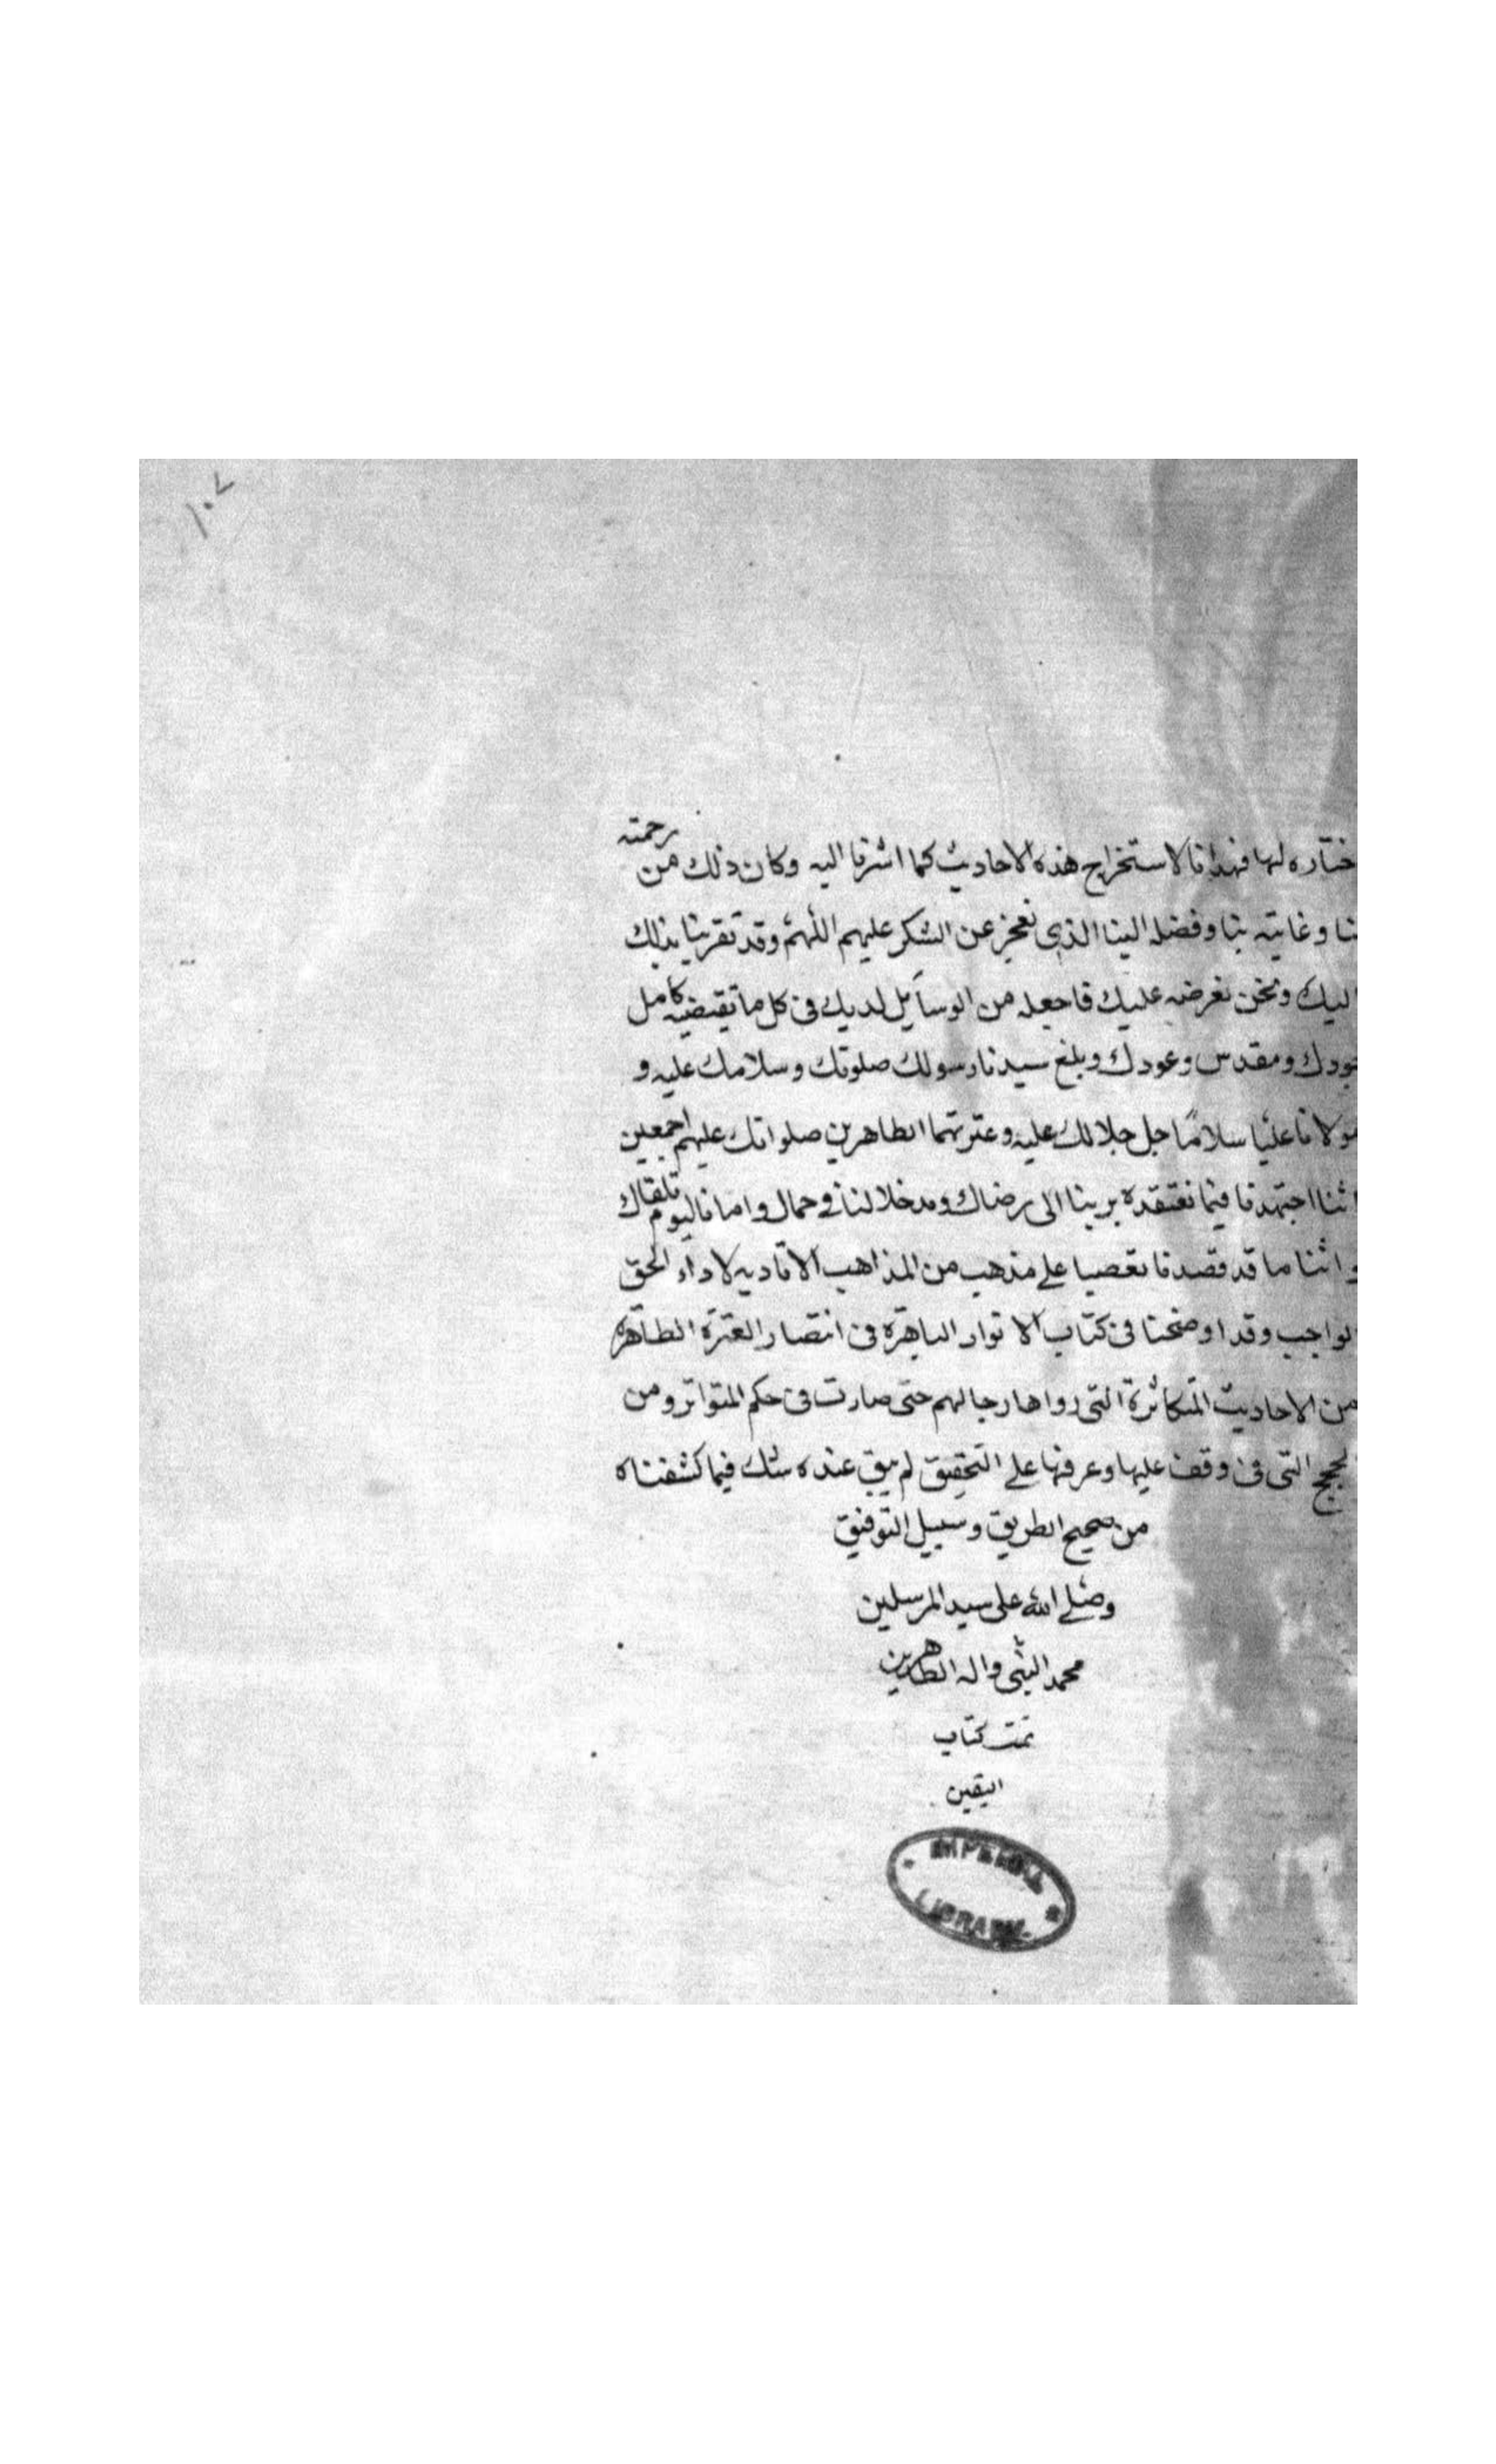 ١٠٧
ختاره لها فهدانا لاستخراج هذه الاحاديث كما اشرنا اليه وكان ذلك من رحمته
نا وغايته بنا وفضله الينا الذي نعجز عن الشكر عليهم اللهم وقد تقربنا بذلك
اليك ونحن نعرضه عليك فاجعله من الوسايل لديك في كل ما تقيضيه كامل
جودك ومقدس وعودك وبلغ سيدنا رسولك صلوتك وسلامك عليه و
مولانا عليا سلاما جل جلالك عليه وعترتهما الطاهرين صلواتك عليهم اجمعين
اننا اجتهدنا فيما نعتقده بربنا الى رضاك ومدخلا لنا في حمال وامانا ليوم تلقاك
و اننا ما قد قصدنا تعصبا على مذهب من المذاهب الا تاديه لاداء الحق
الواجب وقد اوضحنا في كتاب الانوار الباهرة في انتصار العترة الطاهرة
من الاحاديث المتكاثرة التي رواها رجالهم حتى صارت في حكم المتواتر ومن
لحجج التي فن وقف عليها وعرفها على التحقيق لم يبق عنده شك فيما كشفناه
من صحيح الطريق وسبيل التوفيق
وصلى الله على سيد المرسلين
محمد النبي واله الطاهرين
تمت كتاب
اليقين
IMPERIAL
LIBRARY.